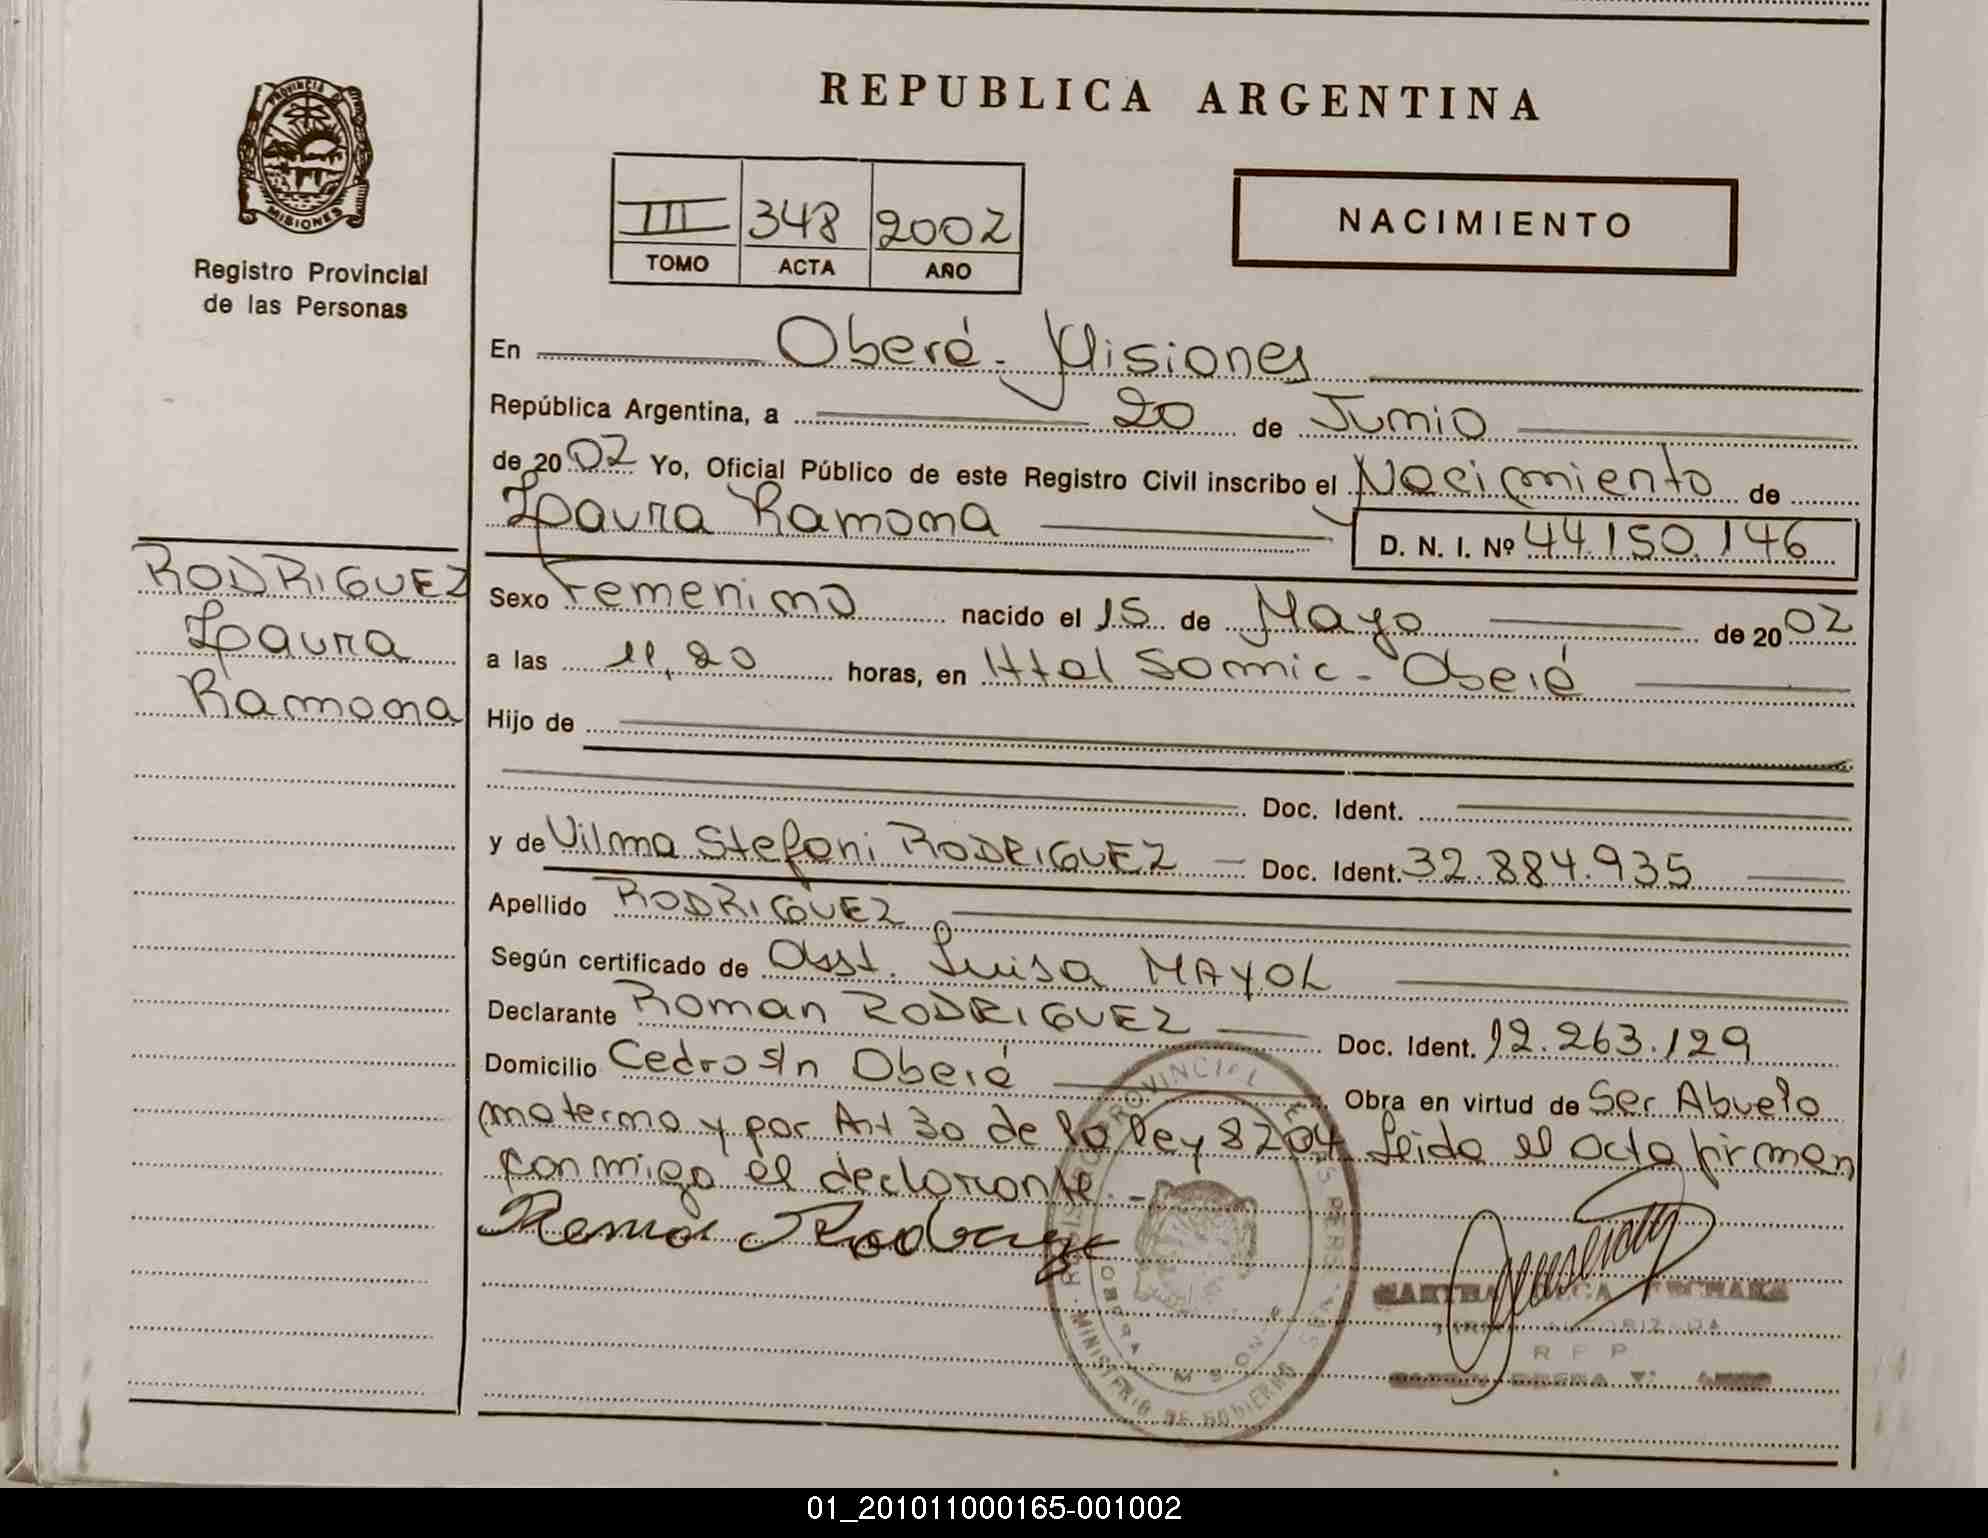 REPUBLICA ARGENTINA
PROVINCIA DE
MISIONES
Registro Provincial
de las Personas
III 348 2002
TOMO ACTA AÑO
NACIMIENTO
En Oberá - Misiones
República Argentina, a 20 de Junio
de 2002 Yo, Oficial Público de este Registro Civil inscribo el Nacimiento de
Laura Ramona
D. N. I. Nº 44.150.146
RODRIGUEZ
Laura
Ramona
Sexo Femenino nacido el 15 de Mayo de 2002
a las 11,20 horas, en Htal Sammic - Oberá
Hijo de
Doc. Ident.
y de Vilma Stefani RODRIGUEZ Doc. Ident. 32.884.935
Apellido RODRIGUEZ
Según certificado de Obst. Luisa MAYOL
Declarante Roman RODRIGUEZ Doc. Ident. 12.263.129
Domicilio Cedro s/n Oberá Obra en virtud de Ser Abuelo
materno y por Art 30 de la ley 8204 Leida el acta firman
conmigo el declarante. -
REGISTRO PROVINCIAL DE LAS PERSONAS
MINISTERIO DE GOBIERNO
MARTHA
FIRMA AUTORIZADA
R P P
01_201011000165-001002